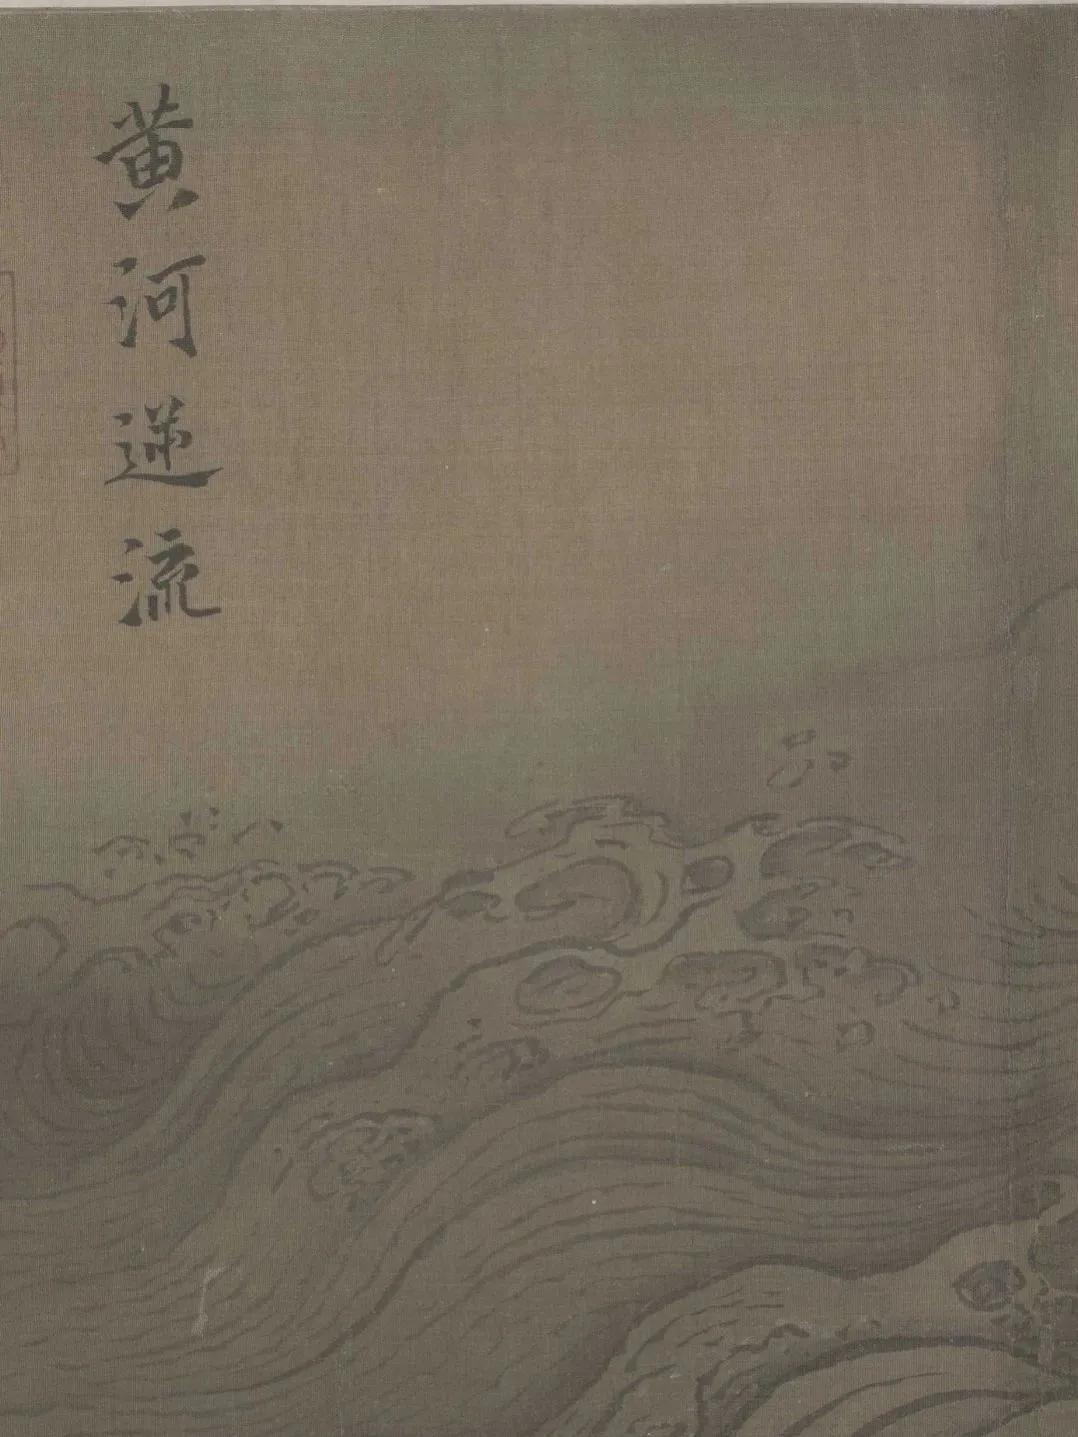 黄河逆流